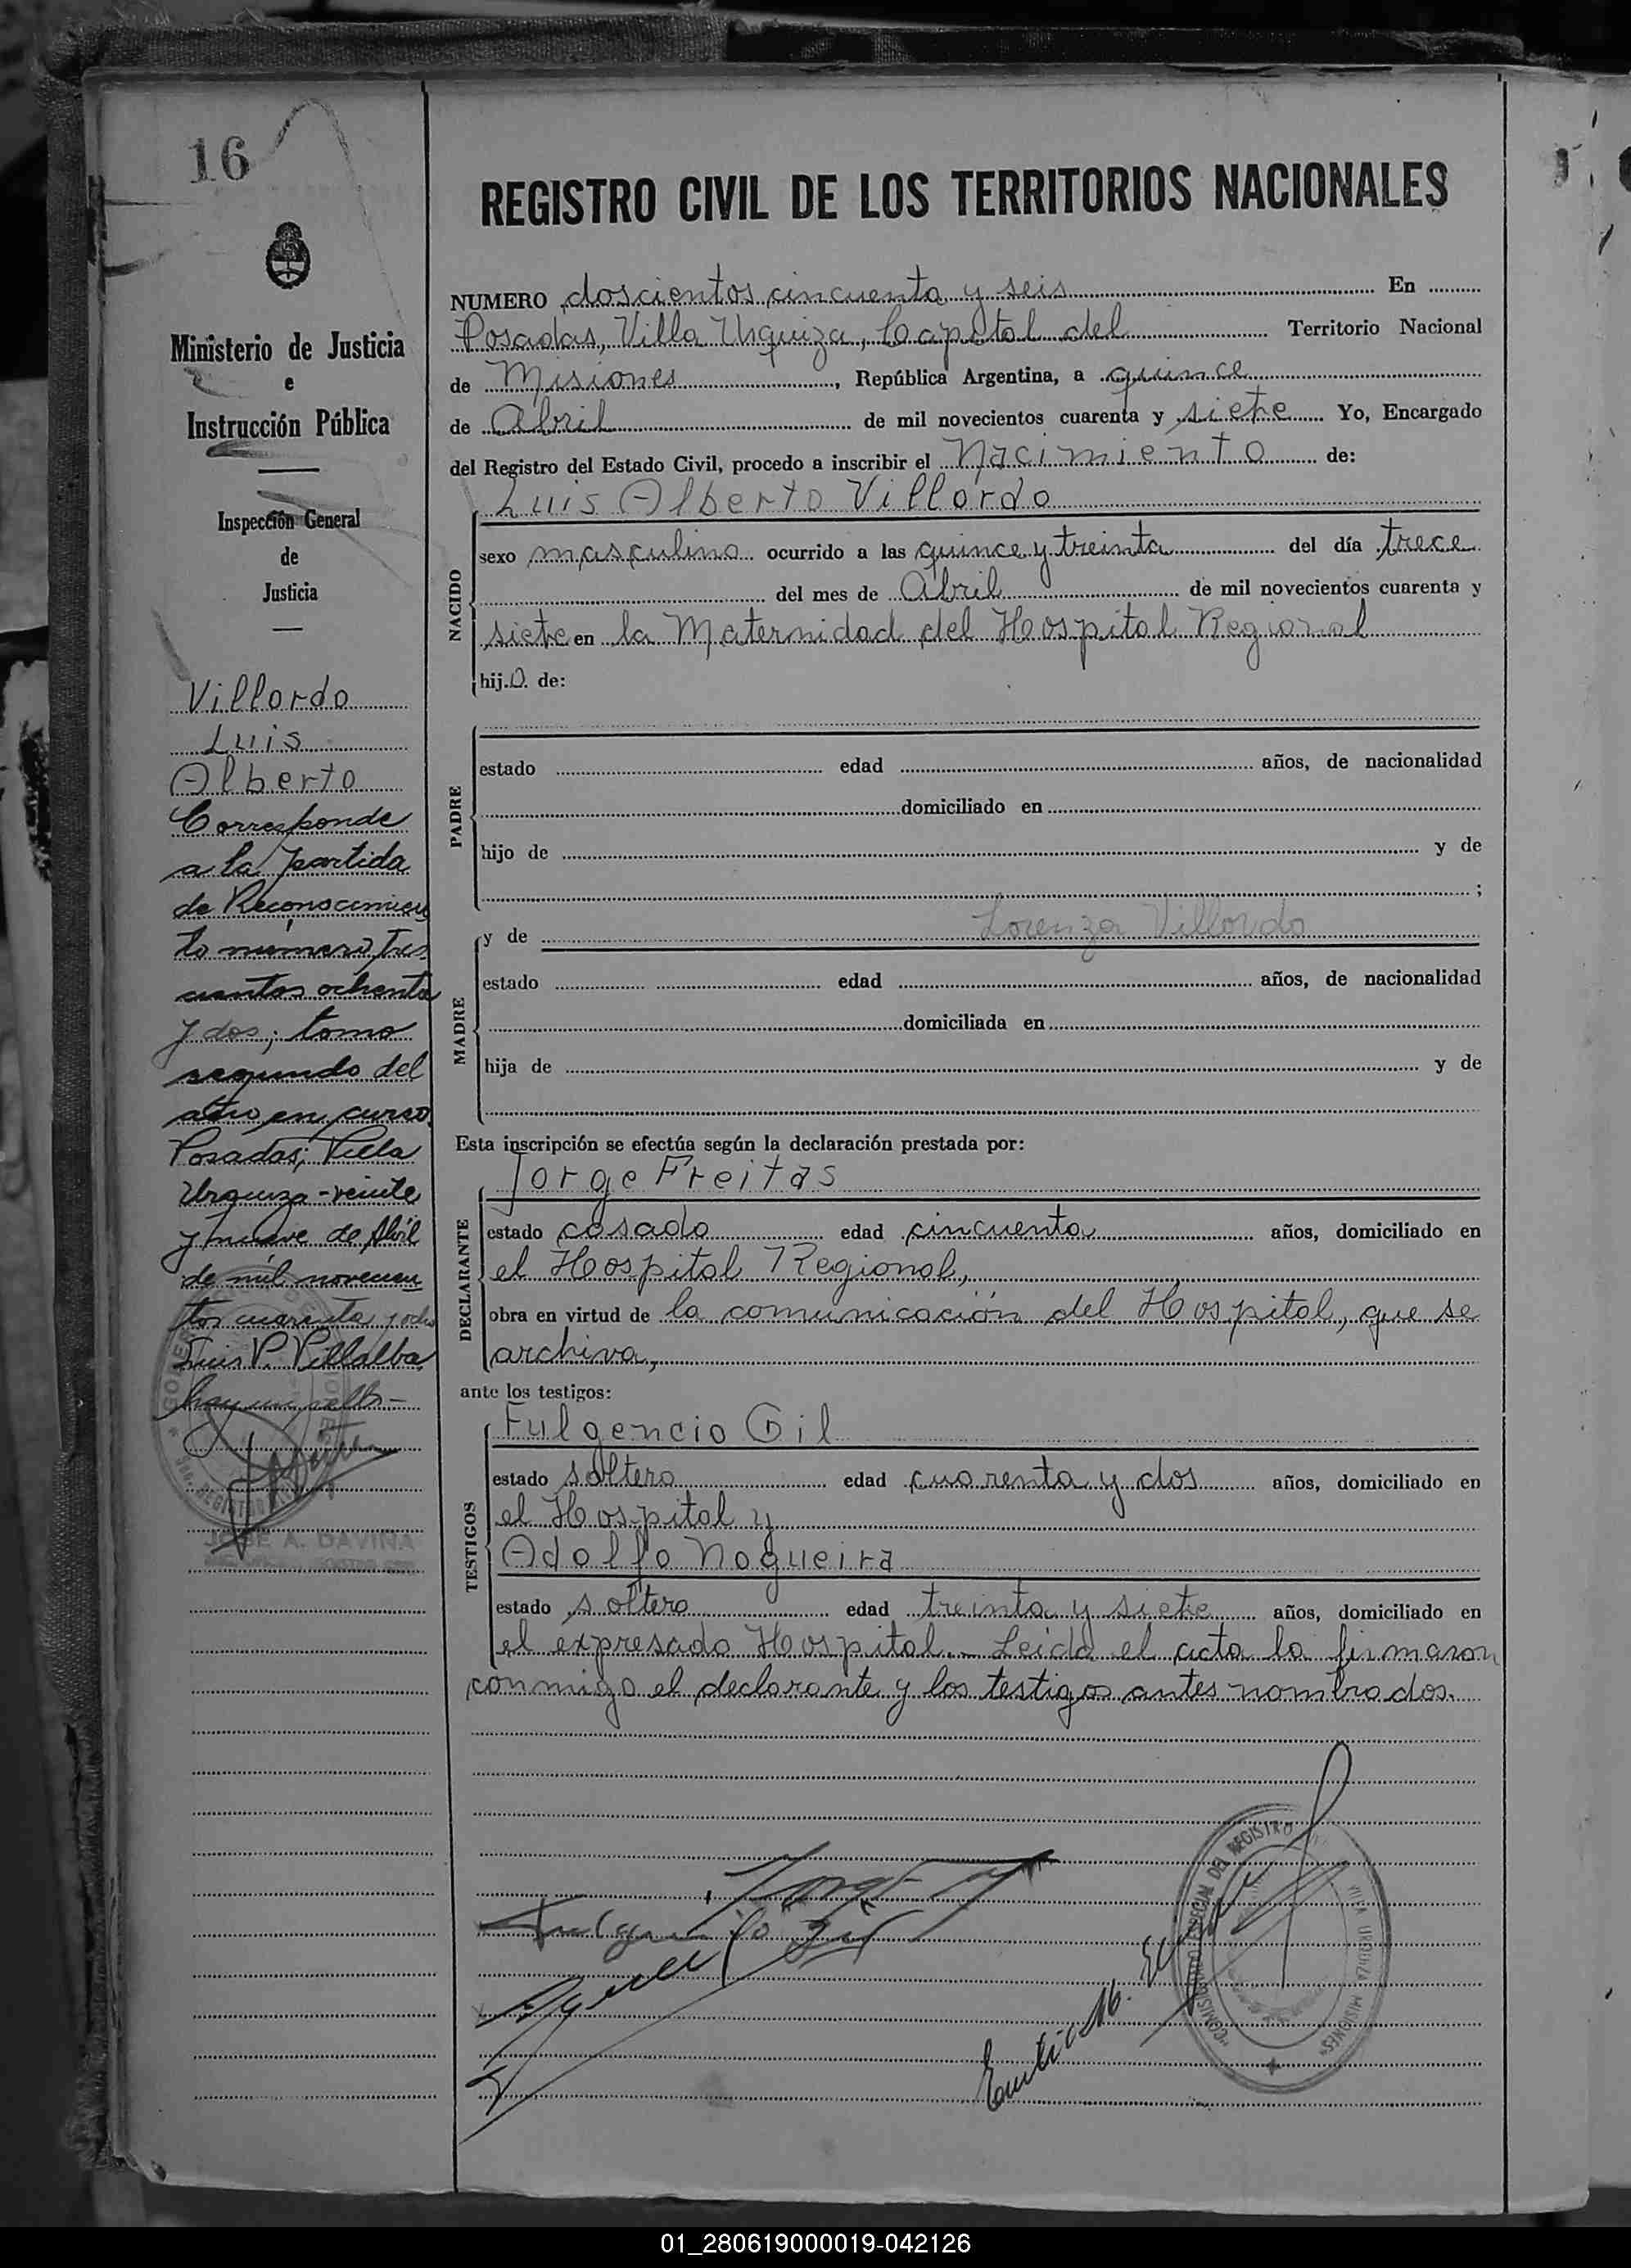 16
Ministerio de Justicia
e
Instrucción Pública
Inspección General
de
Justicia
Villordo
Luis
Alberto
Corresponde
a la partida
de Reconocimien
to número tres
cientos ochenta
y dos; tomo
segundo del
año en curso
Posadas; Villa
Urquiza - veinte
y nueve de Abril
de mil novecien
tos cuarenta y ocho
Luis P. Villalba
hay un sello -
JOSE A. DAVIÑA
REGISTRO CIVIL DE LOS TERRITORIOS NACIONALES
NUMERO doscientos cincuenta y seis En
Posadas, Villa Urquiza, Capital del Territorio Nacional
de Misiones, República Argentina, a quince
de Abril de mil novecientos cuarenta y siete Yo, Encargado
del Registro del Estado Civil, procedo a inscribir el Nacimiento de:
Luis Alberto Villordo
NACIDO
sexo masculino ocurrido a las quince y treinta del día trece
del mes de Abril de mil novecientos cuarenta y
siete en la Maternidad del Hospital Regional
hijo de:
PADRE
estado edad años, de nacionalidad
domiciliado en
hijo de y de
;
y de Lorenza Villordo
MADRE
estado edad años, de nacionalidad
domiciliada en
hija de y de
Esta inscripción se efectúa según la declaración prestada por:
Jorge Freitas
DECLARANTE
estado casado edad cincuenta años, domiciliado en
el Hospital Regional,
obra en virtud de la comunicación del Hospital, que se
archiva,
ante los testigos:
Fulgencio Gil
TESTIGOS
estado soltero edad cuarenta y dos años, domiciliado en
el Hospital y
Adolfo Nogueira
estado soltero edad treinta y siete años, domiciliado en
el expresado Hospital.- Leida el acta la firmaron
conmigo el declarante y los testigos antes nombrados.
Fulgencio Gil
COMISIONADO ESPECIAL DEL REGISTRO
VILLA URQUIZA MISIONES
01_280619000019-042126